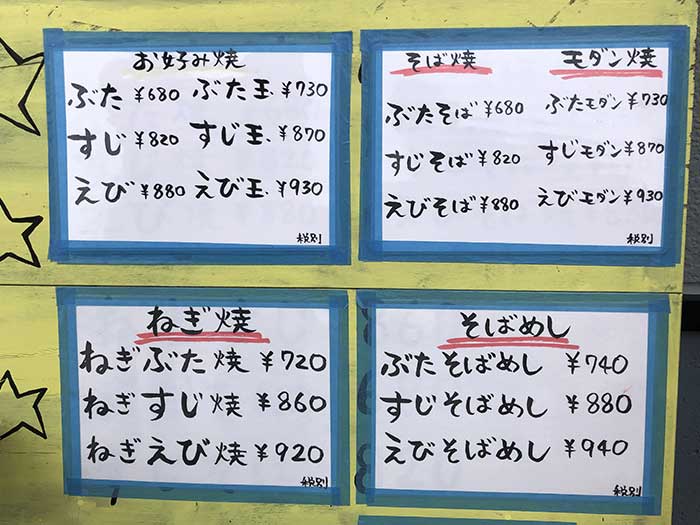 お好み焼
ぶた ¥680 ぶた玉、¥730
すじ ¥820 すじ玉、¥870
えび ¥880 えび玉、¥930
税別
そば焼 モダン焼
ぶたそば ¥680 ぶたモダン ¥730
すじそば ¥820 すじモダン ¥870
えびそば ¥880 えびモダン ¥930
税別
ねぎ焼
ねぎぶた焼 ¥720
ねぎすじ焼 ¥860
ねぎえび焼 ¥920
税別
そばめし
ぶたそばめし ¥740
すじそばめし ¥880
えびそばめし ¥940
税別